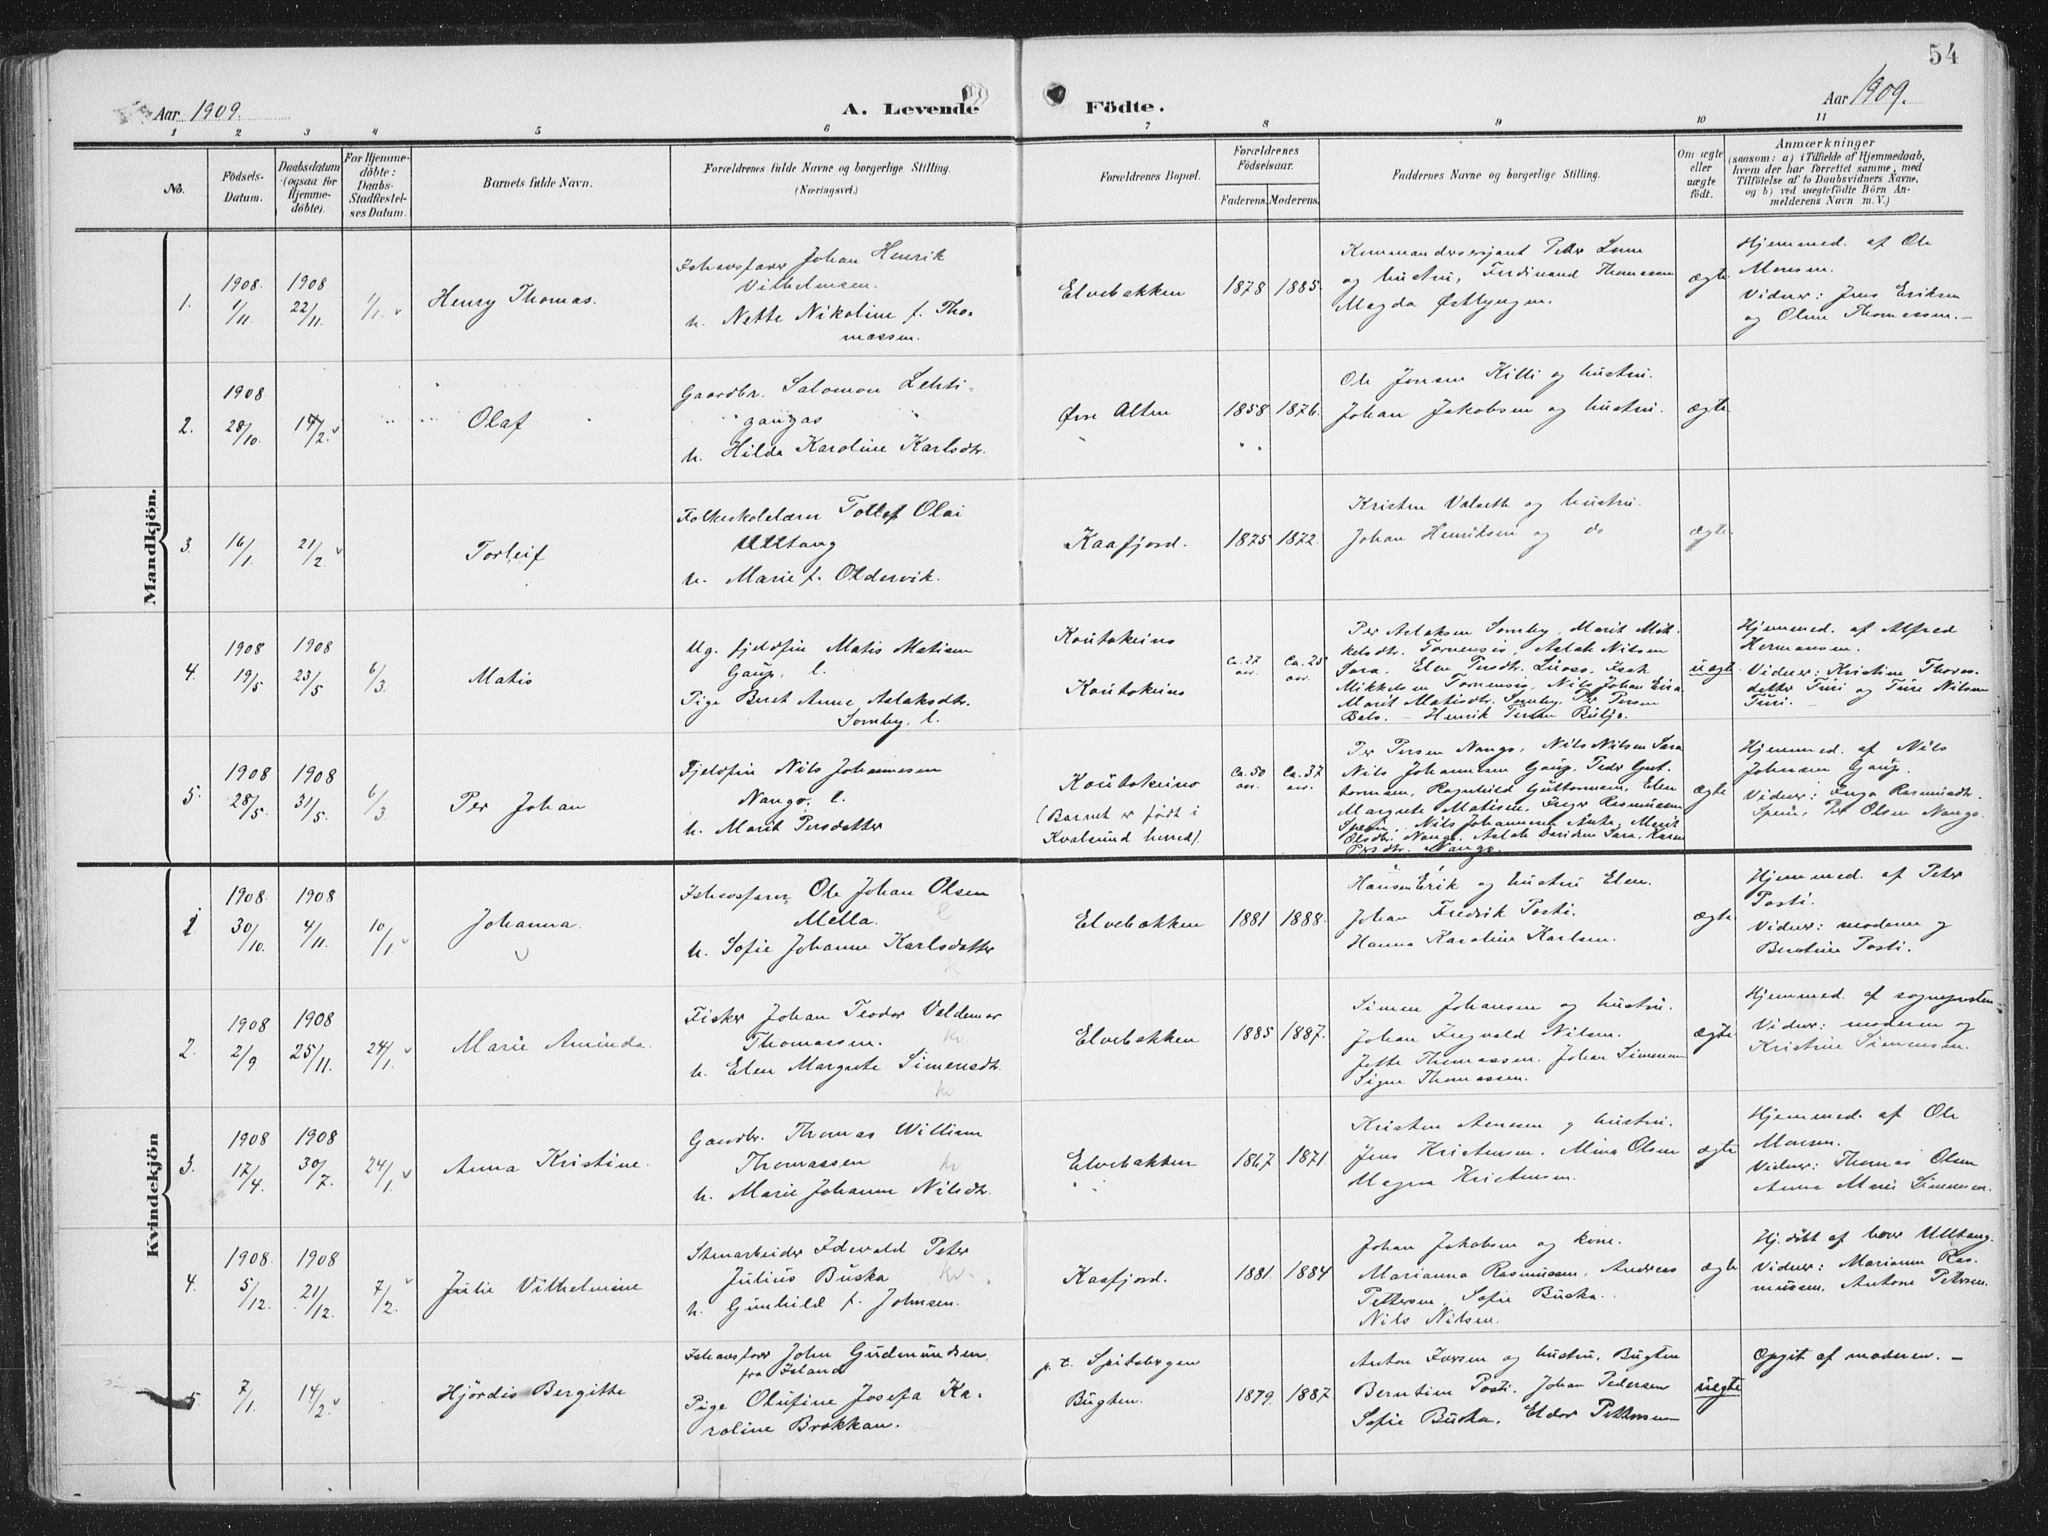 54
Aar 1909.
A. Levende
Födte.
Aar 1909.
1 2 3 4 5 6 7 8 9 10 11
No.
Födsels-Datum.
Daabsdatum (ogsaa for Hjemme-döbte).
For Hjemme-döbte: Daabs-Stadfæstel-ses Datum.
Barnets fulde Navn.
Forældrenes fulde Navne og borgerlige Stilling.
(Næringsvei.)
Forældrenes Bopæl.
Forældrenes Födselsaar.
Faderens. Moderens.
Faddernes Navne og borgerlige Stilling.
Om ægte eller uægte födt.
Anmærkninger
(saasom: a) i Tilfælde af Hjemmedaab,
hvem der har forrettet samme, med
Tilföielse af to Daabsvidners Navne,
og b) ved uægtefödte Börn An-
melderens Navn m. V.)
Mandkjön.
1. 1908. 1/11. 1908 22/11. 1/1. Henry Thomas.
Ishavsfarer Johan Henrik
Vilhelmsen.
h. Nette Nikoline f. Tho-
massen.
Elvebakken 1878 1885.
og hustru, Ferdinand Thomassen
Magda
ægte
Hjemmed. af Ole
Monsen.
Vidner: Jens Eriksen
og Oline Thomassen. –
2. 1908 28/10. 14/2. Olaf
Gaardbr. Salomon Lehti-
gangas
h. Hilda Karoline Karlsdtr.
Øvre Alten 1858 1876.
Ole Jonsen Killi og hustru.
Johan Jakobsen og hustru.
ægte
3. 16/1. 21/2. Torleif
Folkeskolelærer Tollef Olai
Ulltang
h. Marie f. Oldervik.
Kaafjord. 1875 1872.
Kristen Valseth og hustru.
Johan Henriksen og do
ægte
4. 1908 19/5 1908 23/5 6/3. Matis
Ug. fjeldfin Matis Matisen
Gaup, l.
Pige Beret Anne Aslaksdtr.
Somby, l.
Koutokeino
Koutokeino
ca. 27 aar. ca. 25 aar.
Per Aslaksen Somby, Marit Mik-
kelsdtr. Tornensis, Aslak Nilsen
Sara, Elen Persdtr. Isak
Mikkelsen Tornensis, Nils Johan Eira
Marit Matisdtr. Somby, Per Persen
Bals. – Henrik Buljo.
uægte
Hjemmed. af Alfred
Hermansen.
Vidner: Kristine Thoras-
datter Turi og Ture Nilsen
Turi.
5. 1908 28/5. 1908 31/5. 6/3. Per Johan
Fjeldfin Nils Johannesen
Nango, l.
h. Marit Persdatter
Koutokeino
(Barnet er født i
Kvalsund herred).
ca. 50 aar. ca. 37 aar.
Per Persen Nango, Nils Nilsen Sara
Nils Johannesen Gaup, Peder Gut-
tormsen, Ragnhild Guttormsen, Elen
Margrete Matisen, Inger Rasmussen
Spein, Nils Johannesen Marit
Olsdtr. Nango, Aslak Davidsen Sara, Karen
Persdtr. Nango.
ægte
Hjemmed. af Nils
Johnsen Gaup.
Vidner: Inga Rasmusdtr.
Spein, Per Olsen Nango.
Kvindekjön
1 1908. 30/10. 1908 4/11. 10/1. Johanna.
Ishavsfarer Ole Johan Olsen
Mella.
h. Sofie Johanne Karlsdatter
Elvebakken 1881 1888.
Hansen Erik og hustru Elen.
Johan Fredrik Posti.
Hanna Karoline Karlsen.
ægte
Hjemmed. af Peter
Posti.
Vidner: moderen og
Berntine Posti.
2. 1908 2/9. 1908 25/11. 24/1. Marie Aminda.
Fisker Johan Teodor Valdemar
Thomassen. kv.
h. Elen Margrete Simensdtr.
kv
Elvebakken 1885 1887.
Simen Johansen og hustru.
Johan Nilsen.
Jette Thomassen. Johan Simensen
Signe Thomassen.
ægte
Hjemmed. af sognepresten
Vidner: moderen og
Kristine Simensen.
3. 1908 17/4. 1908 30/7. 24/1. Anna Kristine.
Gaardbr. Thomas William
Thomassen kv
h. Marie Johanne Nilsdtr.
Elvebakken 1867 1871.
Kristen Arnesen og hustru.
Jens Kristensen. Mina Olsen
Magna Kristensen.
ægte
Hjemmed. af Ole
Monsen.
Vidner: Thomas Olsen
Anna Marie Simensen.
4. 1908. 5/12. 1908 21/12. 7/2. Julie Vilhelmine
Stenarbeider Edevald Peter
Julius Buska kv.
h. Gunhild f. Johnsen.
Kaafjord. 1881 1884
Johan Jakobsen og kone.
Marianna Rasmussen, Andreas
Pettersen, Sofie Buska.
Nils Nilsen.
ægte
Hj. döbt af lærer Ulltang.
Vidner: Marianne Ras-
mussen, Antone Petersen.
5. 7/1. 14/2. Hjördis Bergitte
Ishavsfarer John Gudmundsen.
fra Island
Pige Olufine Josefa Ka-
roline Brokkan.
p. t. Spitsbergen
Bugten. 1879. 1887.
Anton Iversen og hustru, Bugten
Berntine Posti. Johan Pedersen
Sofie Buska. Eldor Pettersen
uegte
Opgit af moderen. –